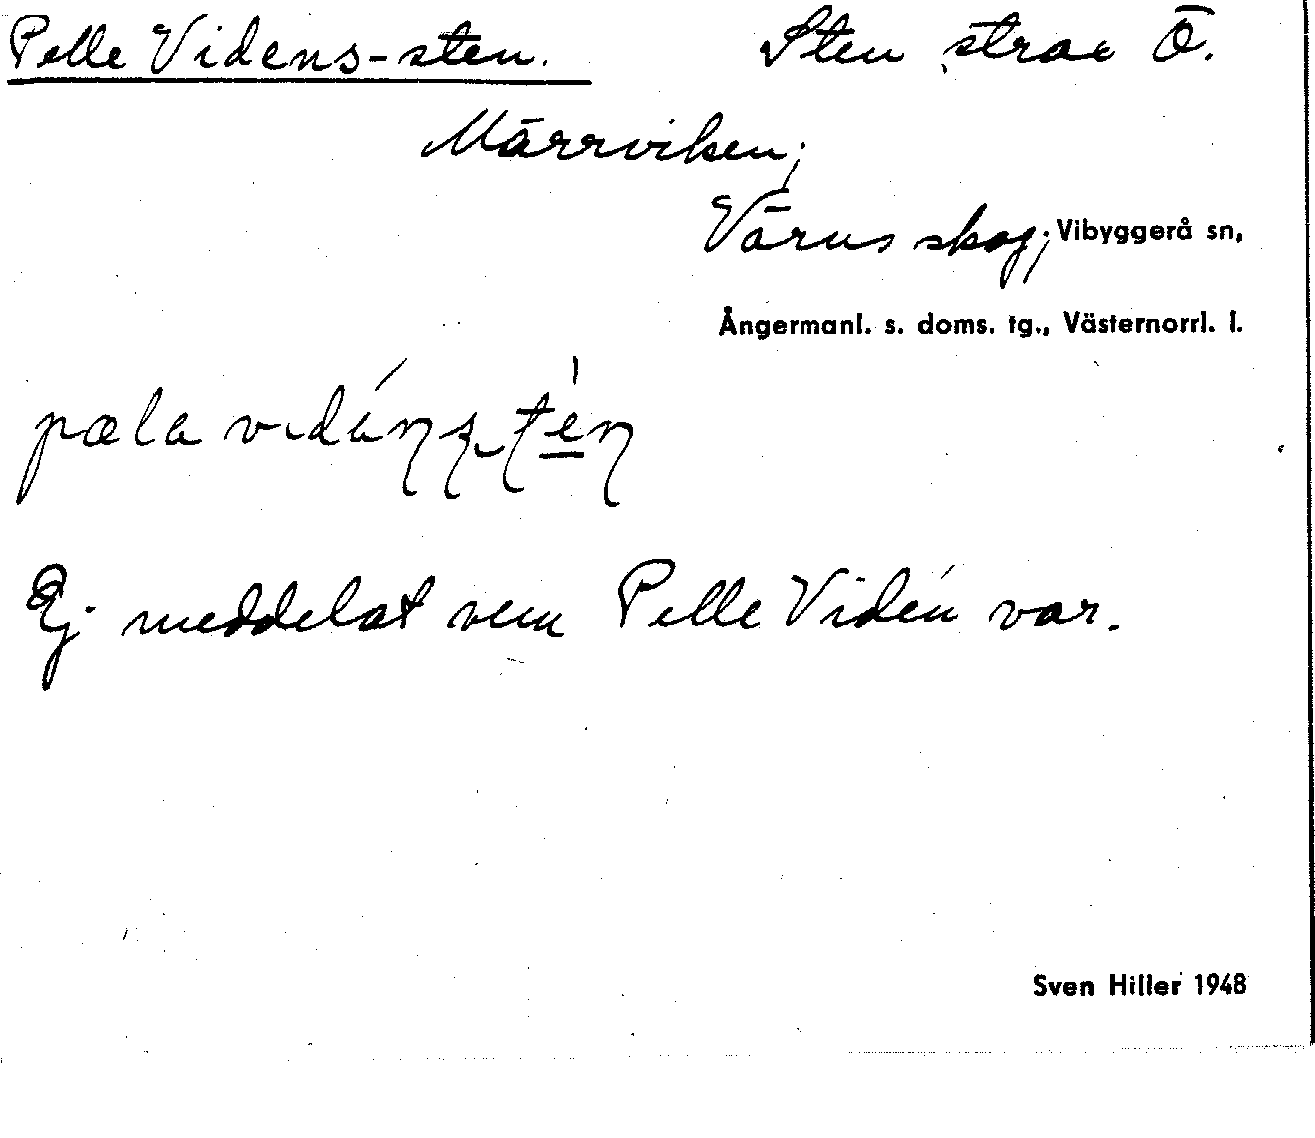 Pelle Videns-sten. Sten strax Ö.
Märrviken;
Vårus skog; Vibyggerå sn,
Ångermanl. s. doms. tg., Västernorrl. l.
Ej meddelat vem Pelle Vidén var.
Sven Hiller 1948